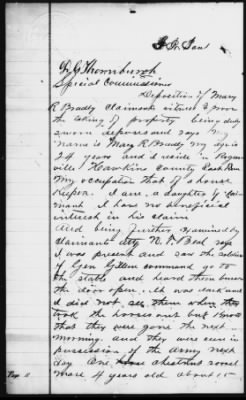 J. G. Thornburgh
Special Commissioner
Deposition of Mary
R Bradly Claimants witness to prove
the taking of property being duly
sworn deposes and says my
name is Mary R Bradly my age is
24 years and I reside in Rogers
ville Hawkins County East Tenn
My occupation that of a house
Keeper. I am a daughter of Clai
mant I have no beneficial
interest in his claim
And being further Examined by
claimants atty
I was present and saw the soldiers
of Gen Gillem command go to
the stable and heard them burst
the door open. it was dark and
I did not see them when they
took the horses out but I know
that they were gone the next
morning. and they were seen in
possession of the army next
day One chestnut sorrel
mare 4 years old about 15
Page 11